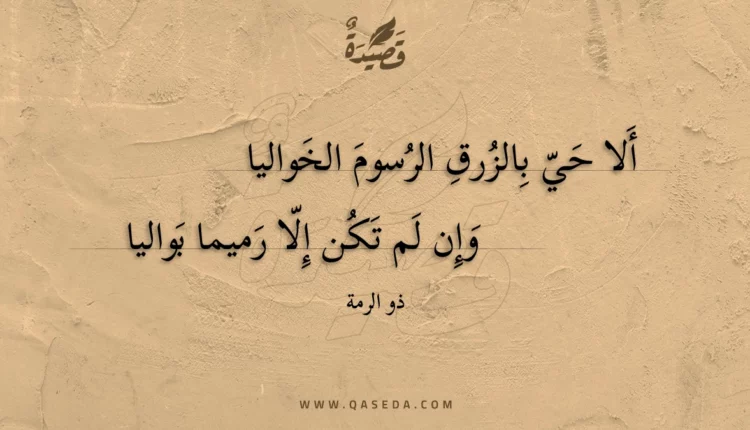 قَصِيدَةٌ
أَلا حَيّ بِالزُرقِ الرُسومَ الخَواليا
وَإِن لَم تَكُن إِلّا رَميما بَواليا
ذو الرمة
WWW.QASEDA.COM